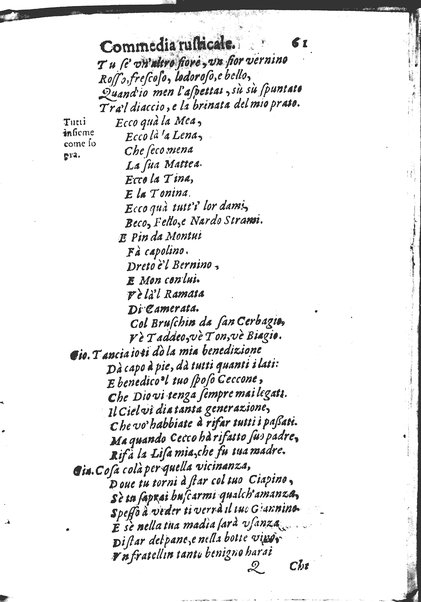 Commedia rusticale. 61
Tu se' vn'altro fiore, vn fior vernino
Rosso, frescoso, lodoroso, e bello,
Quand'io men l'aspettai, sù sù spuntato
Tra'l diaccio, e la brinata del mio prato.
Tutti insieme come sopra.
Ecco quà la Mea,
Ecco là la Lena,
Che seco mena
La sua Mattea.
Ecco la Tina,
E la Tonina.
Ecco quà tutt'i lor dami,
Beco, Festo, e Nardo Strami.
E Pin da Montui
Fà capolino.
Dreto è'l Bernino,
E Mon con lui.
Vè là'l Ramata
Di Camerata.
Col Bruschin da san Cerbagio,
Vè Taddeo, vè Ton, vè Biagio.
Gio. Tancia io ti dò la mia benedizione
Dà capo à piè, dà tutti quanti i lati:
E benedico'l tuo sposo Ceccone,
Che Dio vi tenga sempre mai legati.
Il Ciel vi dia tanta generazione,
Che vo' habbiate à rifar tutti i passati.
Ma quando Cecco hà rifatto suo padre,
Rifà la Lisa mia, che fu tua madre.
Gia. Cosa colà per quella vicinanza,
Doue tu torni à star col tuo Ciapino,
Sè tu saprai buscarmi qualch'amanza,
Spesso à veder ti verrà il tuo Giannino.
E sè nella tua madia sarà vsanza
Di star del pane, e nella botte vino,
Vn fratellin tanto benigno harai
Q Che